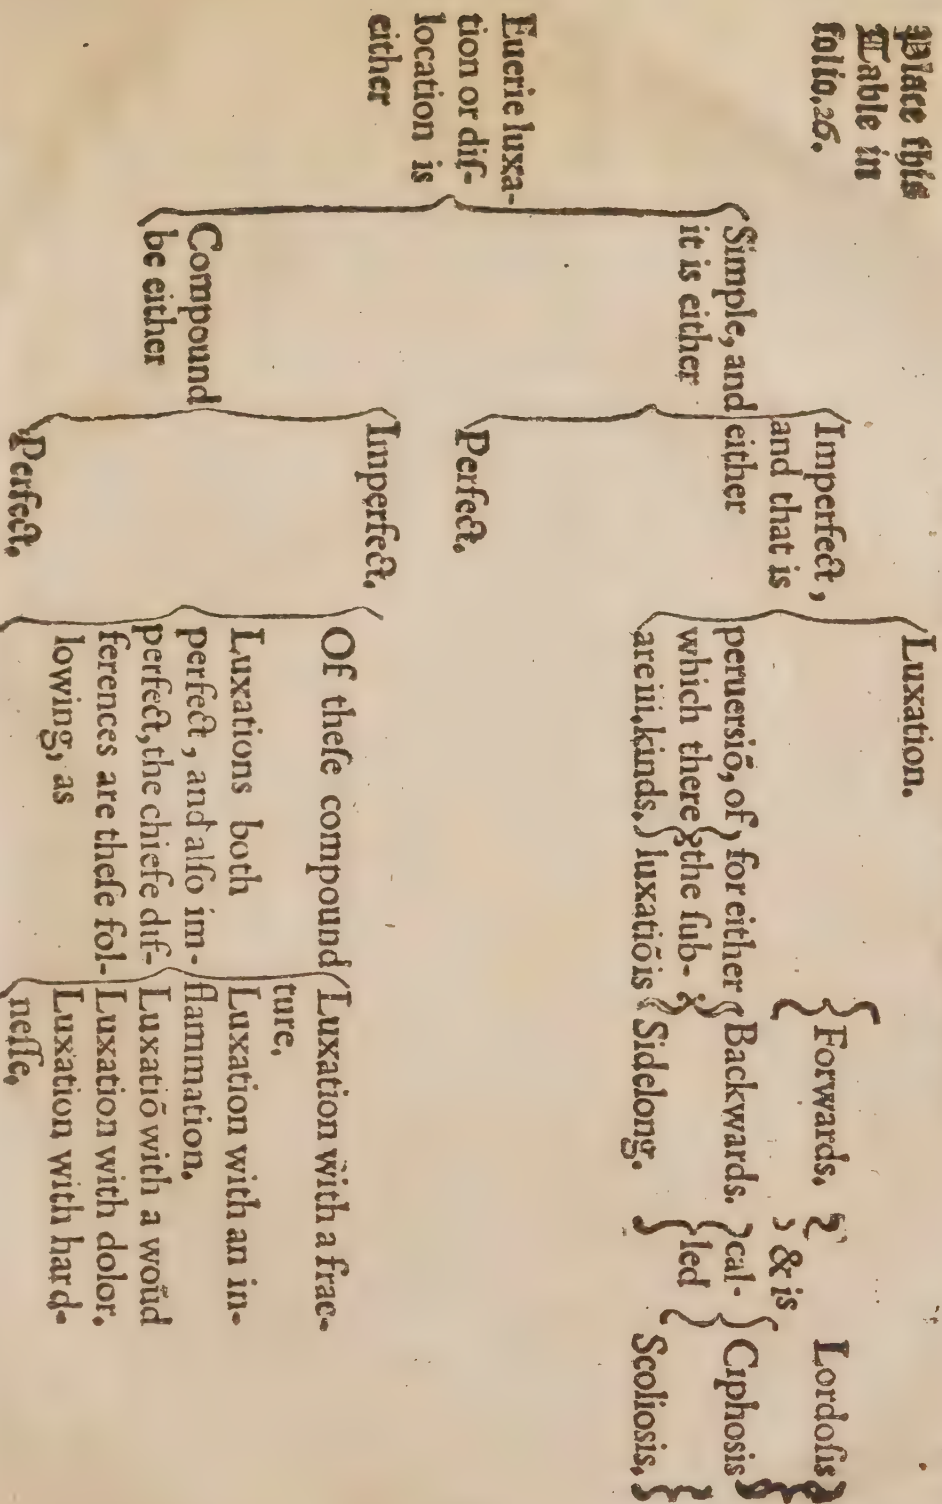 Place this
Table in
folio.26.
Luxation.
Euerie luxa-
tion or diſ-
location is
either
Simple, and
it is either
Imperfect,
and that is
either
peruersiō, of
which there
are iii. kinds,
, for either
the ſub-
luxatiōis
Forwards,
Backwards.
Sidelong.
& is
cal-
led
Lordoſis
Ciphosis
Scoliosis.
Perfect.
Compound
be either
Imperfect.
Perfect.
Of theſe compound
Luxations both
perfect, and alſo im-
perfect, the chiefe dif-
ferences are theſe fol-
lowing, as
Luxation with a frac-
ture.
Luxation with an in-
flammation.
Luxatiō with a woūd
Luxation with dolor.
Luxation with hard-
neſſe.